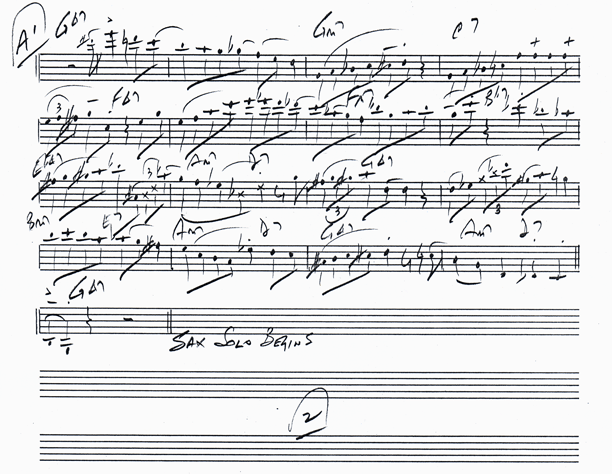 A1 G△7 Gm7 C7
3 F△7 Fm7 B♭7
E♭△7 3 Am7 D7 G△7
3 3
Bm7 E7 Am7 D7 G△7 Am7 D7
G△7
SAX SOLO BEGINS
2